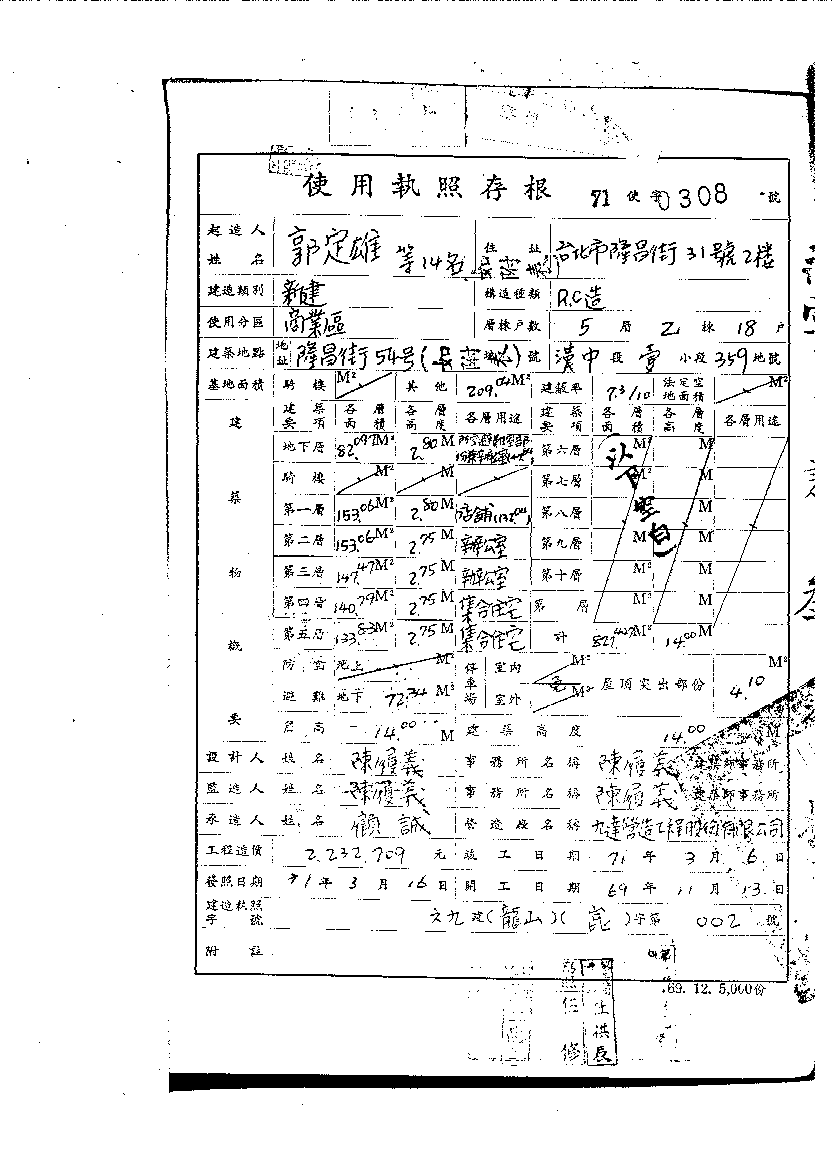 使用執照存根 71 使字0308 號
起造人姓名 郭定雄 等14名 住址 台北市隆昌街31號2樓
建造類別 新建 構造種類 R.C造
使用分區 商業區 層棟戶數 5 層 乙 棟 18 戶
建築地點 地址 隆昌街54号 號 漢中 段 壹 小段 359 地號
基地面積 騎樓 M² 其他 209.04 M² 建蔽率 7.3/10 法定空地面積 M²
建築物概要
建築要項 各層面積 各層高度 各層用途 建築要項 各層面積 各層高度 各層用途
地下層 82.097 M² 2.80 M 第六層 M² M
騎樓 M² M 第七層 M² M
第一層 153.06 M² 2.80 M 店舖 第八層 M² M
第二層 153.06 M² 2.75 M 辦公室 第九層 M² M
第三層 147.47 M² 2.75 M 辦公室 第十層 M² M
第四層 140.79 M² 2.75 M 集合住宅 第 層 M² M
第五層 133.83 M² 2.75 M 集合住宅 計 M² 14.00 M
以下空白
防空避難 地上 M² 停車場 室內 M² 屋頂突出部份 4.10 M²
地下 72.34 M² 室外 M²
簷高 14.00 M 建築高度 14.00 M
設計人 姓名 陳履義 事務所名稱 陳履義 建築師事務所
監造人 姓名 陳履義 事務所名稱 陳履義 建築師事務所
承造人 姓名 顧誠 營造廠名稱 九達營造工程股份有限公司
工程造價 2,232,709 元 竣工日期 71 年 3 月 6 日
發照日期 71 年 3 月 16 日 開工日期 69 年 11 月 13 日
建造執照字號 六九建(龍山)(崑)字第 002 號
附註
69. 12. 5,000份